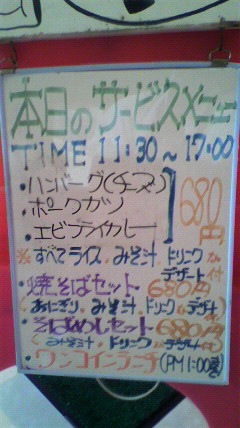 本日のサービスメニュー
TIME 11:30～17:00
・ハンバーグ(チーズ)
・ポークカツ
・エビフライカレー
680円
※すべてライス、みそ汁、ドリンク
デザート付
・焼そばセット 680円
(おにぎり、みそ汁、ドリンク、デザート
・そばめしセット 680円
(みそ汁、ドリンク、デザート付
・ワンコインランチ(PM1:00迄)